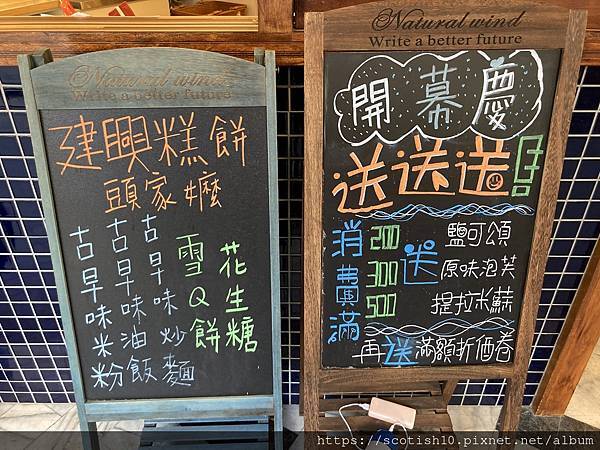 Natural wind
Write a better future
建興糕餅
頭家嬤
古早味米粉
古早味油飯
古早味炒麵
雪Q餅
花生糖
Natural wind
Write a better future
開幕慶
送送送
消費滿
200 送 鹽可頌
300 原味泡芙
500 提拉米蘇
再送滿額折價券
https://scottish10.pixnet.net/album